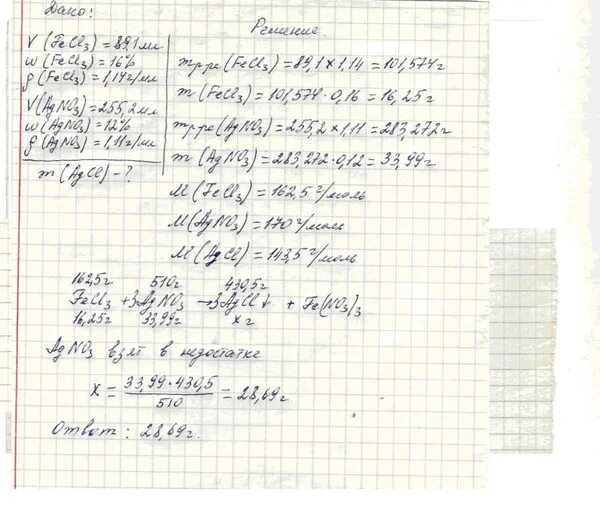 Дано:
V (FeCl₃) = 89,1 мл
w (FeCl₃) = 16%
ρ (FeCl₃) = 1,14 г/мл
V (AgNO₃) = 255,2 мл
w (AgNO₃) = 12%
ρ (AgNO₃) = 1,11 г/мл
m (AgCl) - ?
Решение.
m р-ра (FeCl₃) = 89,1 × 1,14 = 101,574 г
m (FeCl₃) = 101,574 · 0,16 = 16,25 г
m р-ра (AgNO₃) = 255,2 × 1,11 = 283,272 г
m (AgNO₃) = 283,272 · 0,12 = 33,99 г
M (FeCl₃) = 162,5 г/моль
M (AgNO₃) = 170 г/моль
M (AgCl) = 143,5 г/моль
162,5г 510г 430,5г
FeCl₃ + 3AgNO₃ → 3AgCl↓ + Fe(NO₃)₃
16,25г 33,99г x г
AgNO₃ взят в недостатке
x = 33,99 · 430,5 / 510 = 28,69 г
Ответ: 28,69 г.